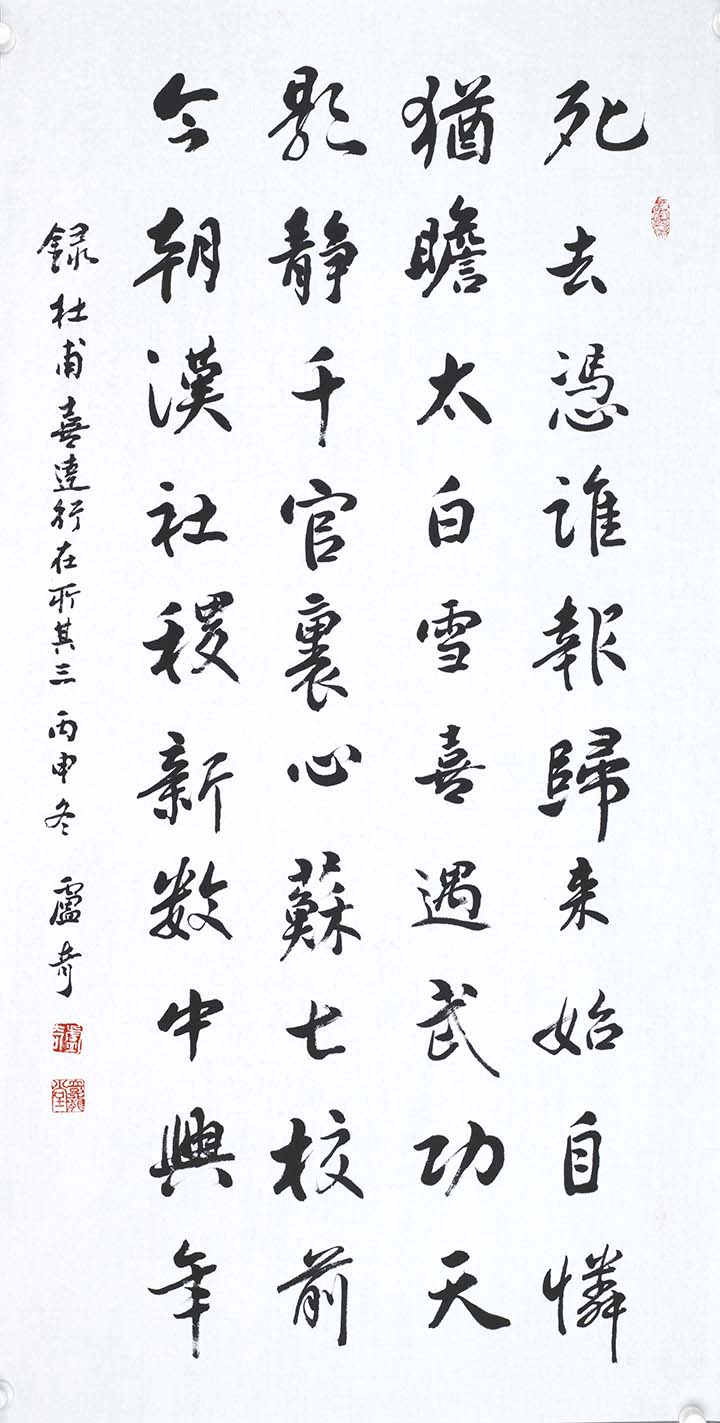 死去憑誰報歸来始自憐
猶瞻太白雪喜遇武功天
影静千官裏心蘇七校前
今朝漢社稷新数中興年
録杜甫喜達行在所其三丙申冬盧奇